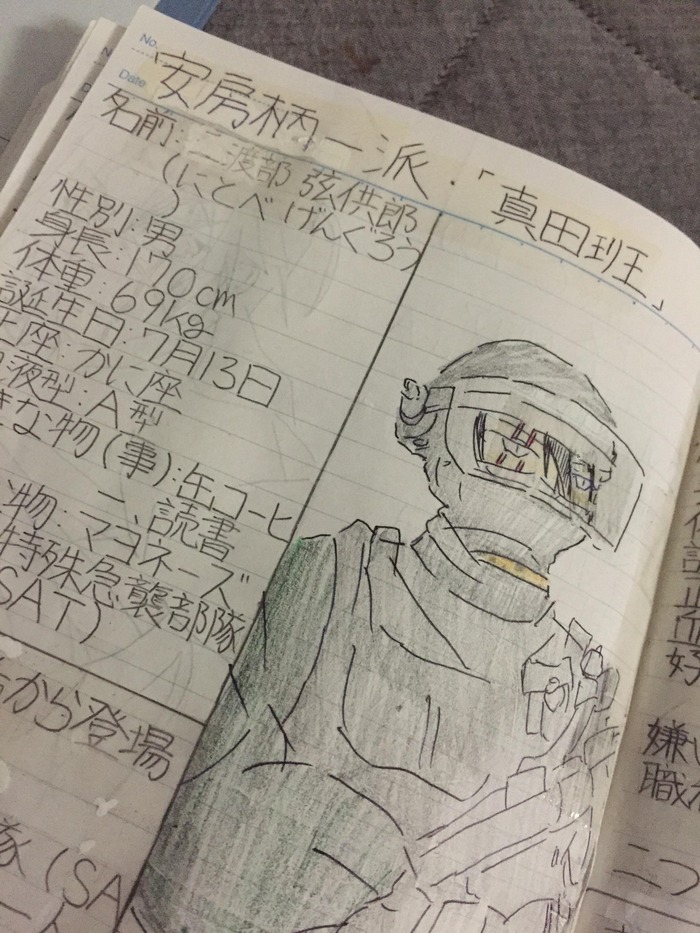 No.
Date
安房柄一派・「真田班」
名前:二渡部 弦供郎
(にとべ げんぐろう
)
性別:男
身長:170cm
体重:69kg
誕生日:7月13日
座:かに座
液型:A型
きな物(事):缶コーヒ
ー、読書
物:マヨネーズ
特殊急襲部隊
(SAT)
から登場
隊(SA
嫌い
職
二つ